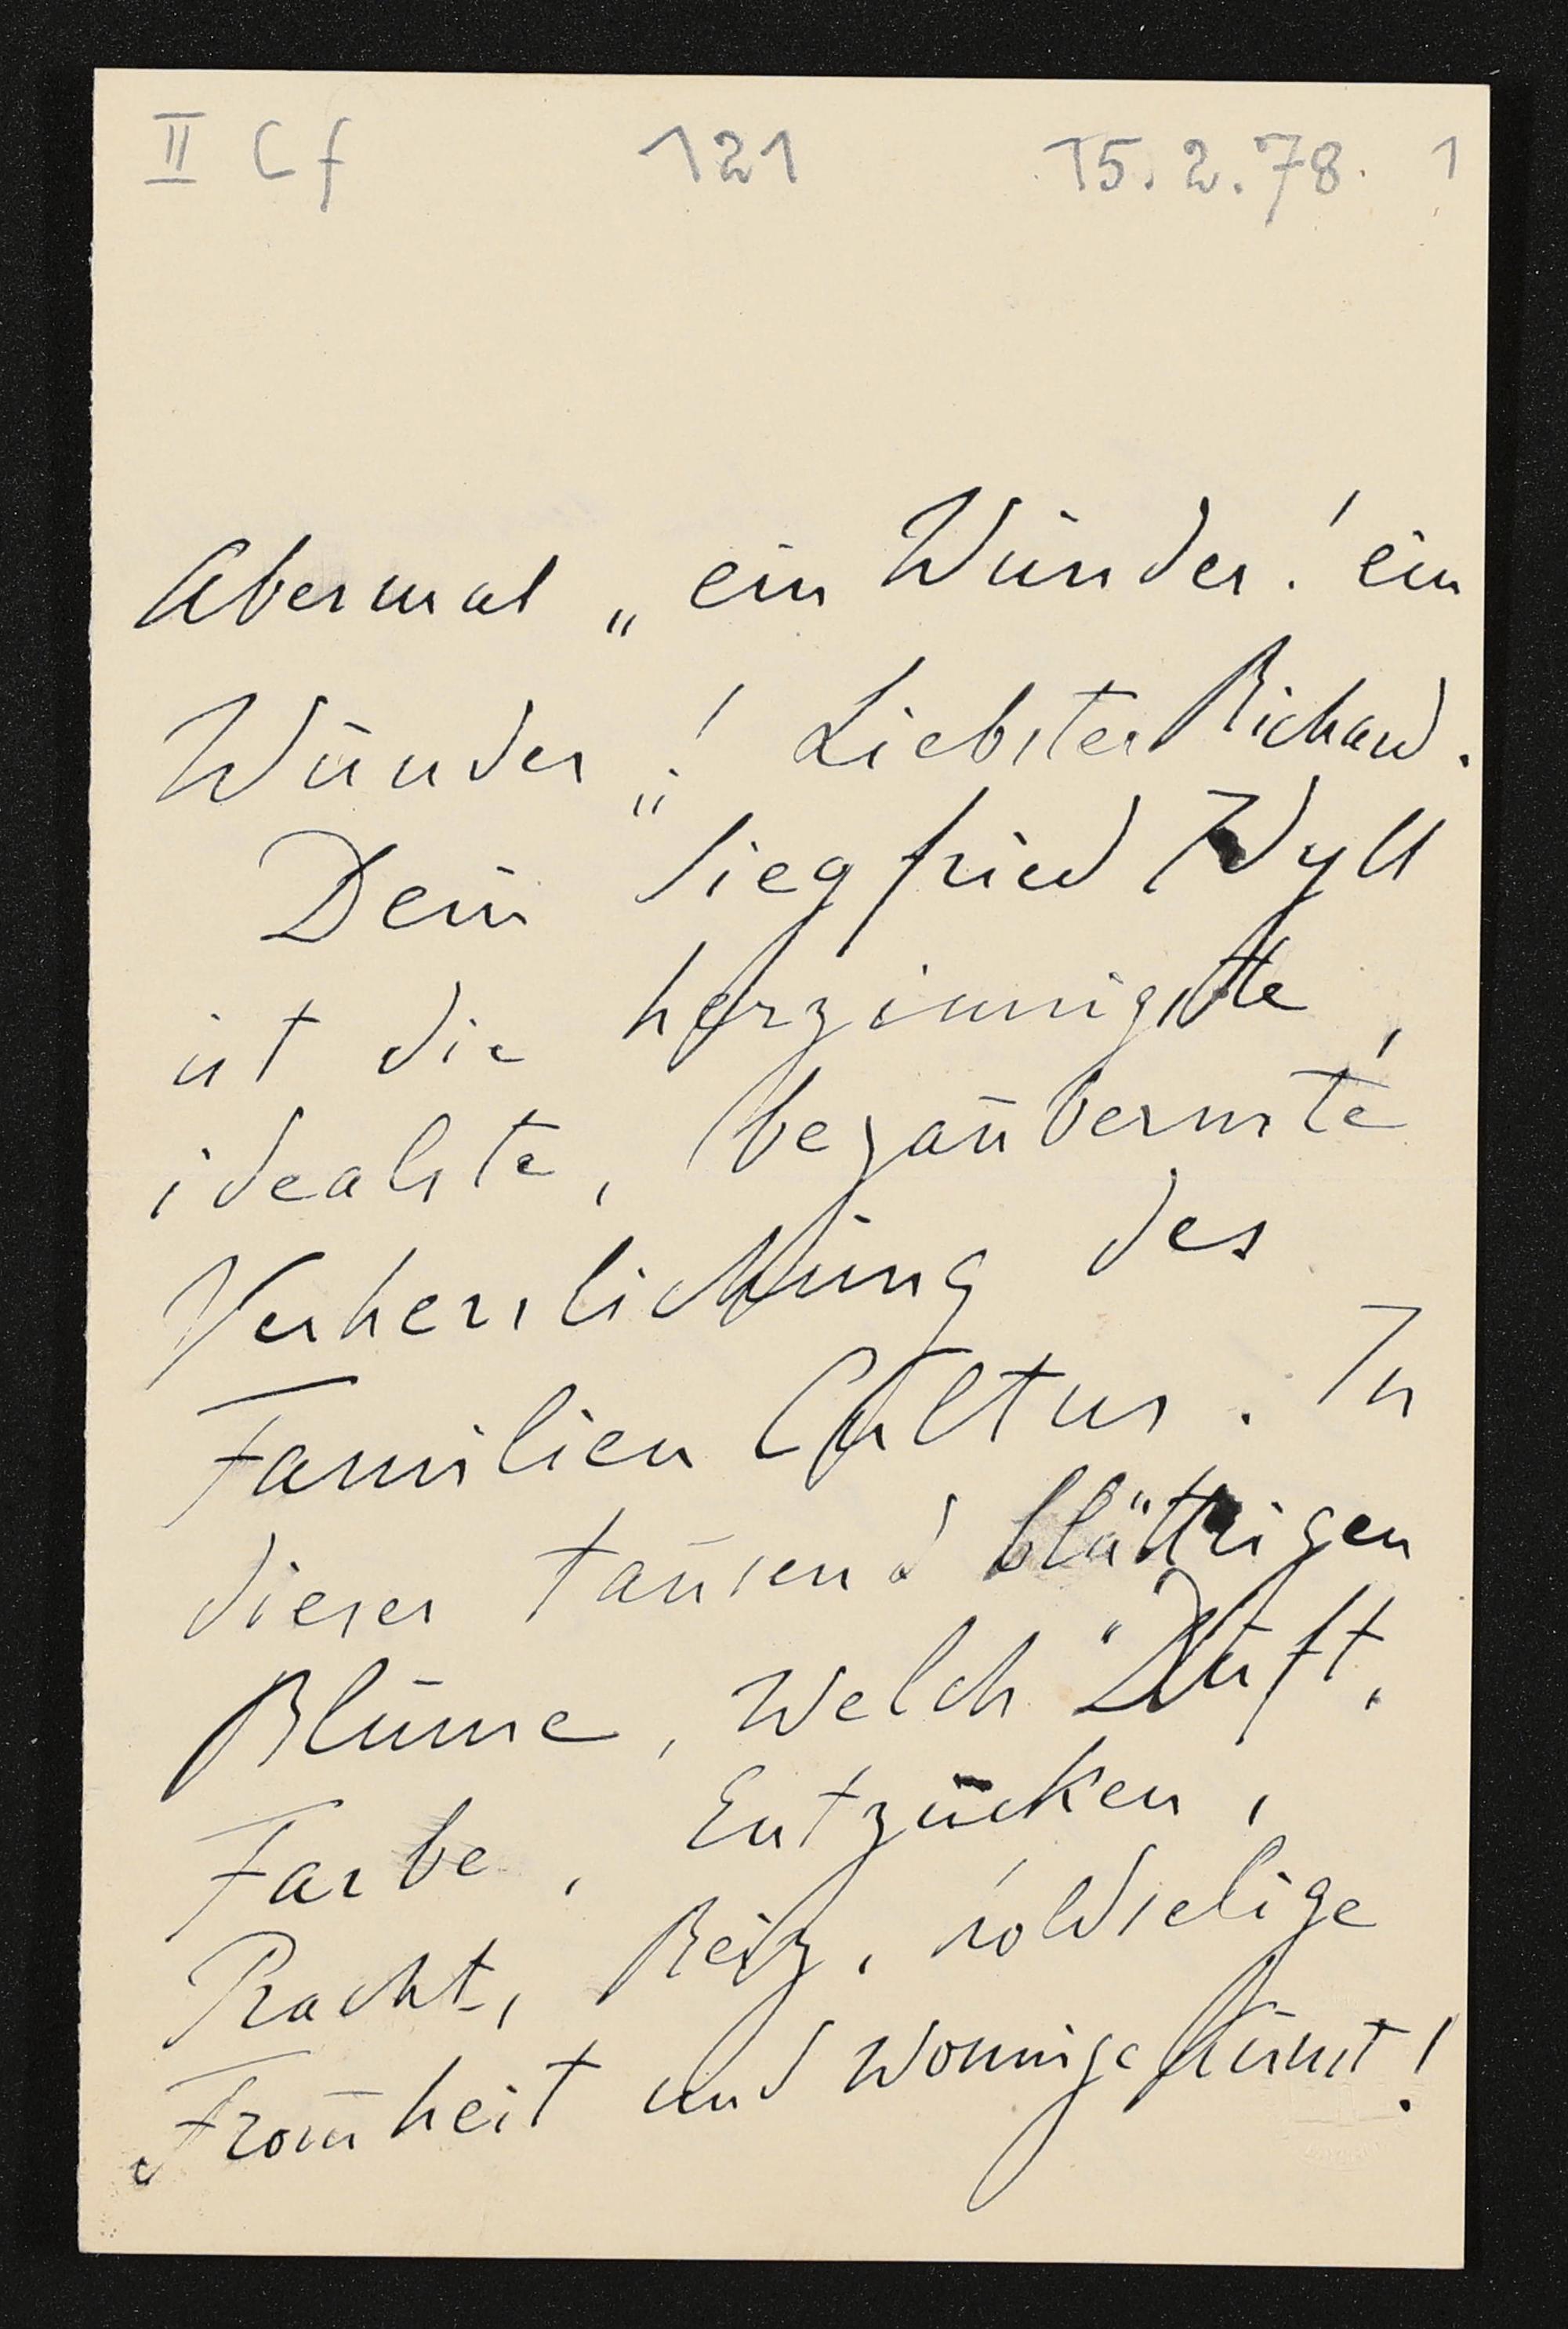 II Cf 121 15.2.78. 1
Abermal „ein Wunder! ein
Wunder„! Liebster Richard.
Dein Siegfried Idyll
ist die herzinnigste,
idealste, bezauberndste
Verherrlichung des
Familien Cultus. In
dieser tausend blättrigen
Blume, welch Duft,
Farbe, Entzücken,
Pracht, Reiz, holdselige
From̄heit und wonnige Kunst!